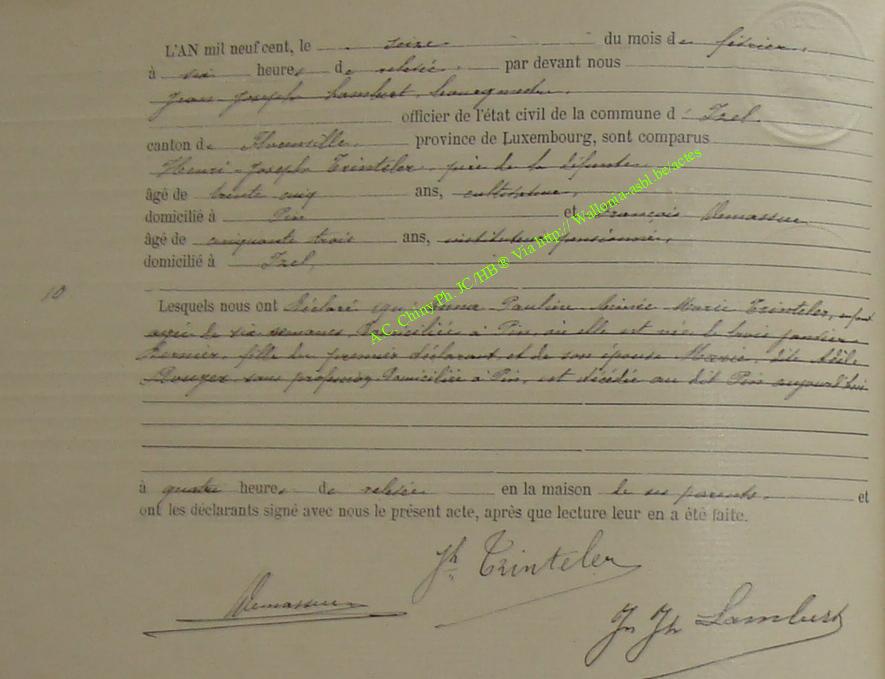 L'AN mil neuf cent, le seize du mois de février,
à six heures de relevée, par devant nous
Jean-Joseph Lambert, bourgmestre,
officier de l'état civil de la commune d'Izel
canton de Florenville, province de Luxembourg, sont comparus
Henri-Joseph Trinteler, père de la défunte
âgé de trente cinq ans, cultivateur,
domicilié à Pin et François Demasseur
âgé de cinquante trois ans, instituteur pensionné,
domicilié à Izel,
10
Lesquels nous ont déclaré qu' Anna Pauline Marie Trinteler, enfant
agée de six semaines, domiciliée à Pin, où elle est née, le trois janvier
dernier, fille du premier déclarant, et de son épouse Marie, dite Adèle
sans profession, domiciliée à Pin, est décédée au dit Pin aujourd'hui
à quatre heures de relevée en la maison de ses parents, et
ont les déclarants signé avec nous le présent acte, après que lecture leur en a été faite.
Jh Trinteler
Demasseur
Jn Jh Lambert
A.C. Chiny Ph. JC/HB® Via http:// Wallonia-asbl.be/actes